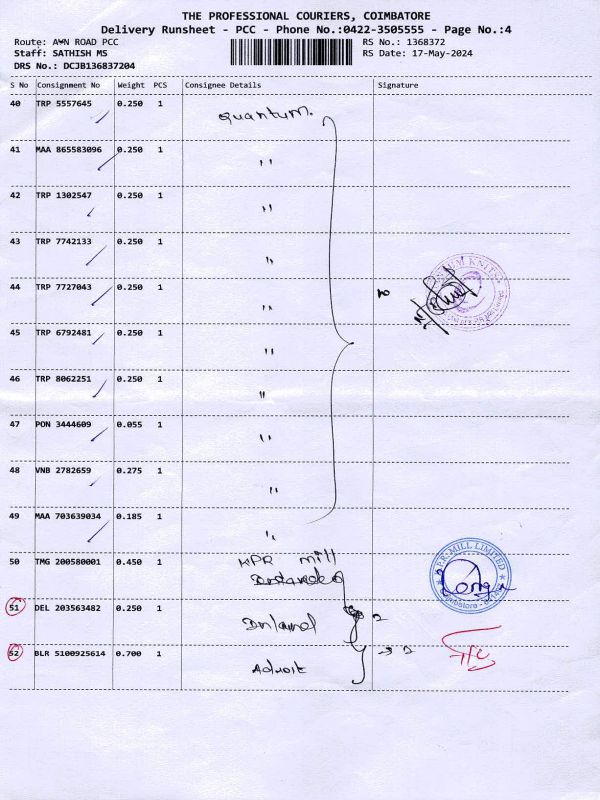 THE PROFESSIONAL COURIERS, COIMBATORE
Delivery Runsheet - PCC - Phone No.:0422-3505555 - Page No.:4
Route: AWN ROAD PCC RS No.: 1368372
Staff: SATHISH MS RS Date: 17-May-2024
DRS No.: DCJB136837204
S No Consignment No Weight PCS Consignee Details Signature
40 TRP 5557645 0.250 1 Quantum.
41 MAA 865583096 0.250 1 "
42 TRP 1302547 0.250 1 "
43 TRP 7742133 0.250 1 "
44 TRP 7727043 0.250 1 " 10
45 TRP 6792481 0.250 1 "
46 TRP 8062251 0.250 1 "
47 PON 3444609 0.055 1 "
48 VNB 2782659 0.275 1 "
49 MAA 703639034 0.185 1 "
50 TMG 200580001 0.450 1 KPR mill
P.R. MILL LIMITED
51 DEL 203563482 0.250 1 2
52 BLR 5100925614 0.700 1 Adroit 2